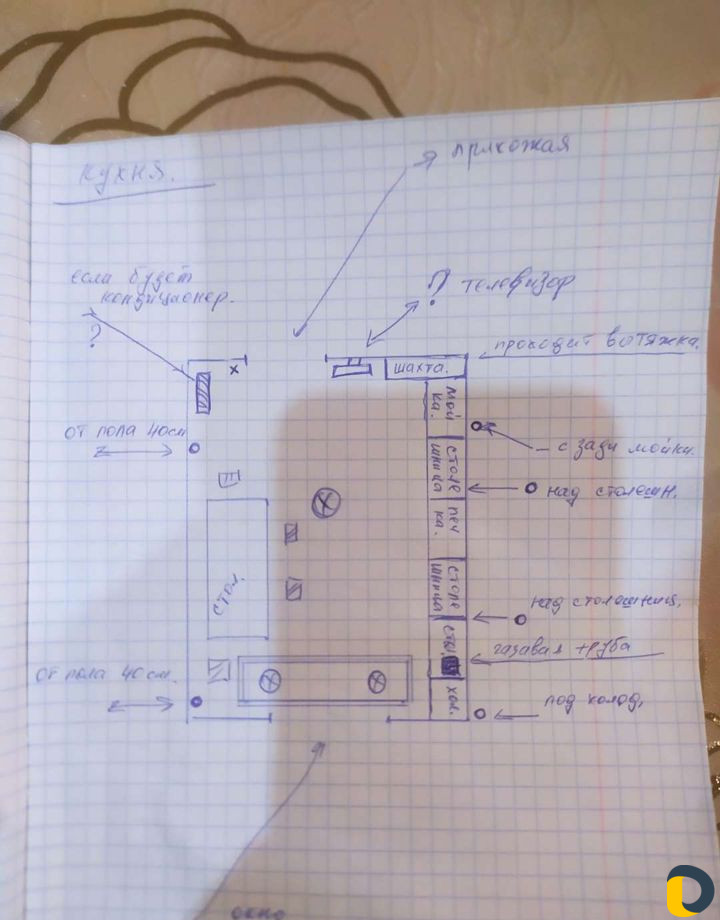 кухня.
прихожая
если будет
кондиционер.
?
? телевизор
проходит вотяжка.
шахта.
мой
ка.
от пола 40см
с зади мойки.
столе
шница
над столешн.
печ
ка.
стол.
столе
шница
над столешниц.
стол
газавая труба
от пола 40см.
хол.
под холод.
окно